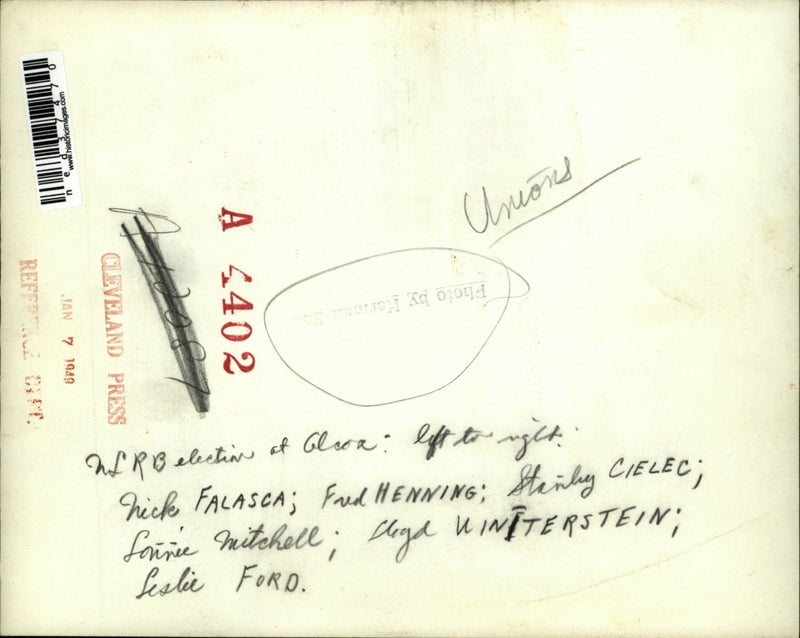 ned37470
www.historicimages.com
Unions
A 4402
Photo by Herman
CLEVELAND PRESS
JAN 7 1949
REFERENCE DEPT.
NLRB election at Alcoa: left to right:
Nick FALASCA; Fred HENNING; Stanley CIELEC;
Lonnie Mitchell; Lloyd WINTERSTEIN;
Leslie FORD.